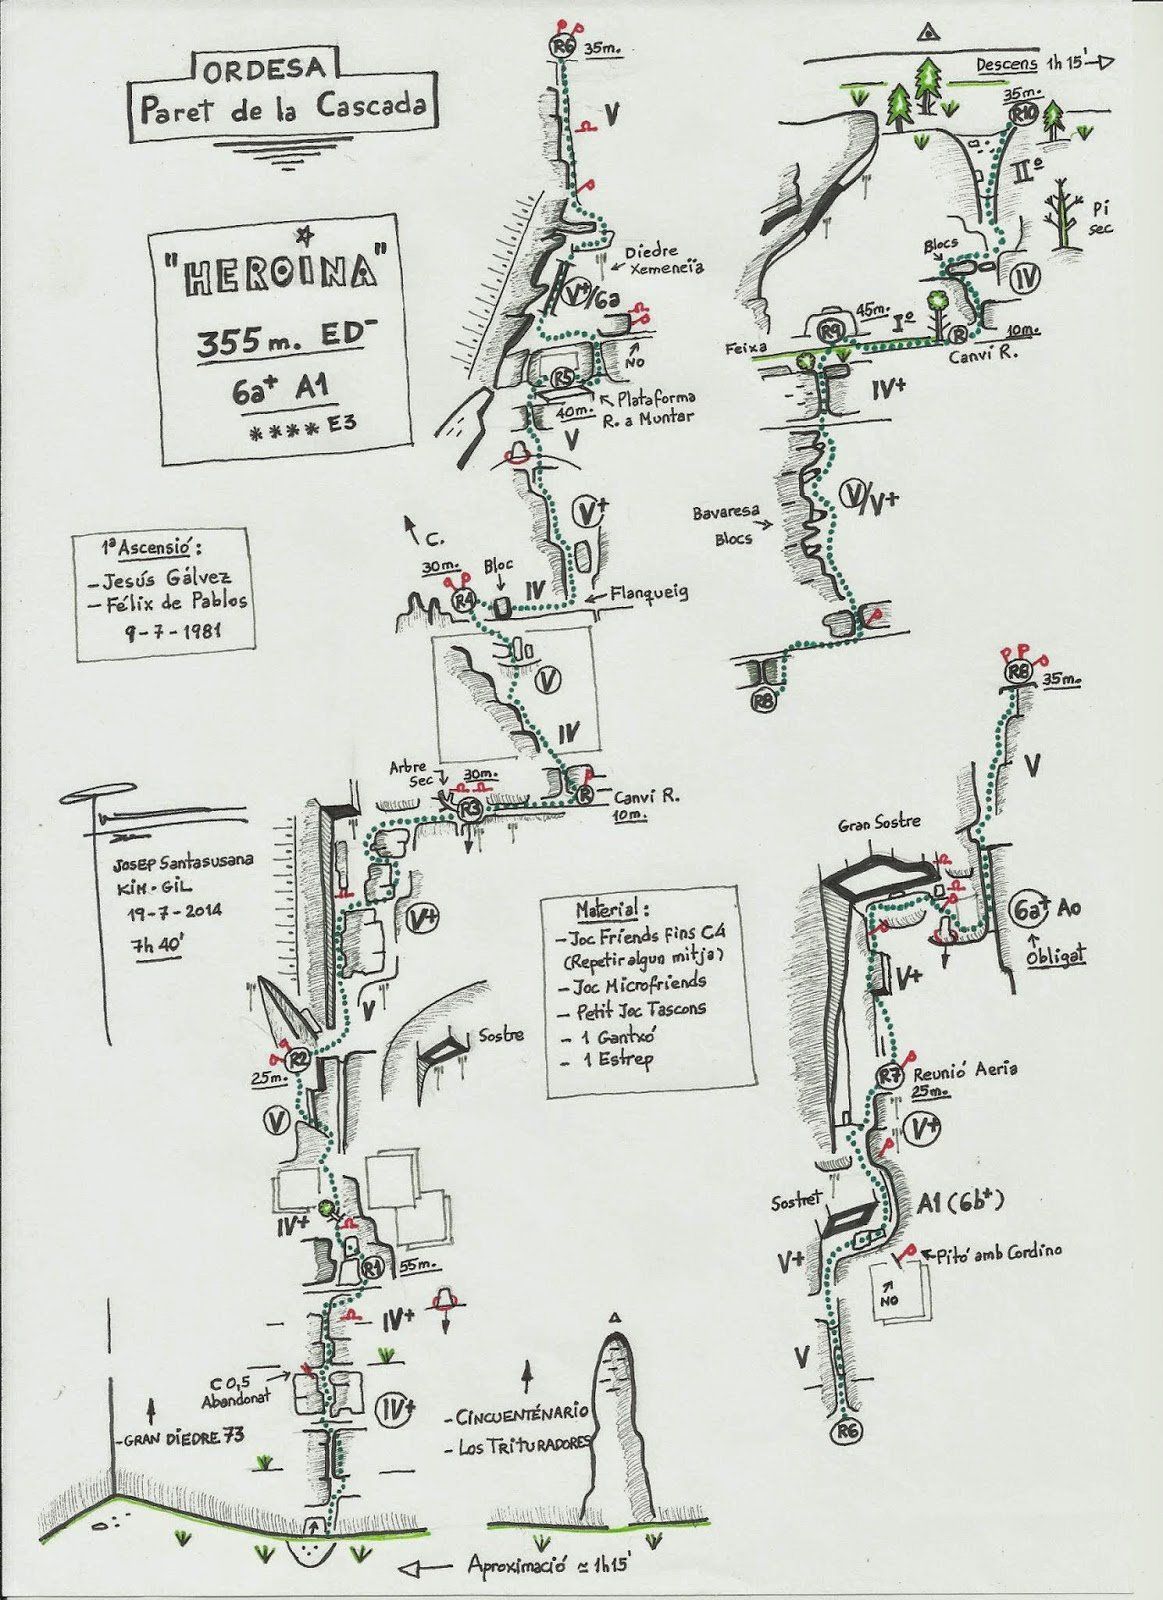 ORDESA
Paret de la Cascada
"HEROINA"
355m. ED-
6a+ A1
****E3
1ª Ascensió:
- Jesús Gálvez
- Félix de Pablos
9-7-1981
R6
35m.
V
Diedre
Xemeneïa
V+/6a
NO
R5
40m.
Plataforma
R. a Muntar
V
V+
C.
30m.
R4
Bloc
IV
Flanqueig
V
IV
Arbre
Sec
30m.
R3
R
Canvi R.
10m.
V+
V
Josep Santasusana
Kim-Gil
19-7-2014
7h 40'
R2
25m.
V
Sostre
IV+
R1
55m.
IV+
C 0,5
Abandonat
IV+
- GRAN DIEDRE 73
- CINCUENTENARIO
- LOS TRITURADORES
Aproximació ≃ 1h15'
Material:
- Joc Friends fins C4
(Repetir algun mitja)
- Joc Microfriends
- Petit Joc Tascons
- 1 Gantxó
- 1 Estrep
Descens 1h 15'
35m.
R10
IIº
Pi
sec
Blocs
IV
45m.
R9
Iº
R
10m.
Canvi R.
Feixa
IV+
V/V+
Bavaresa
Blocs
R8
R8
35m.
V
Gran Sostre
6a+ A0
Obligat
V+
R7
Reunió Aeria
25m.
V+
Sostret
A1 (6b+)
V+
Pitó amb Cordino
NO
V
R6